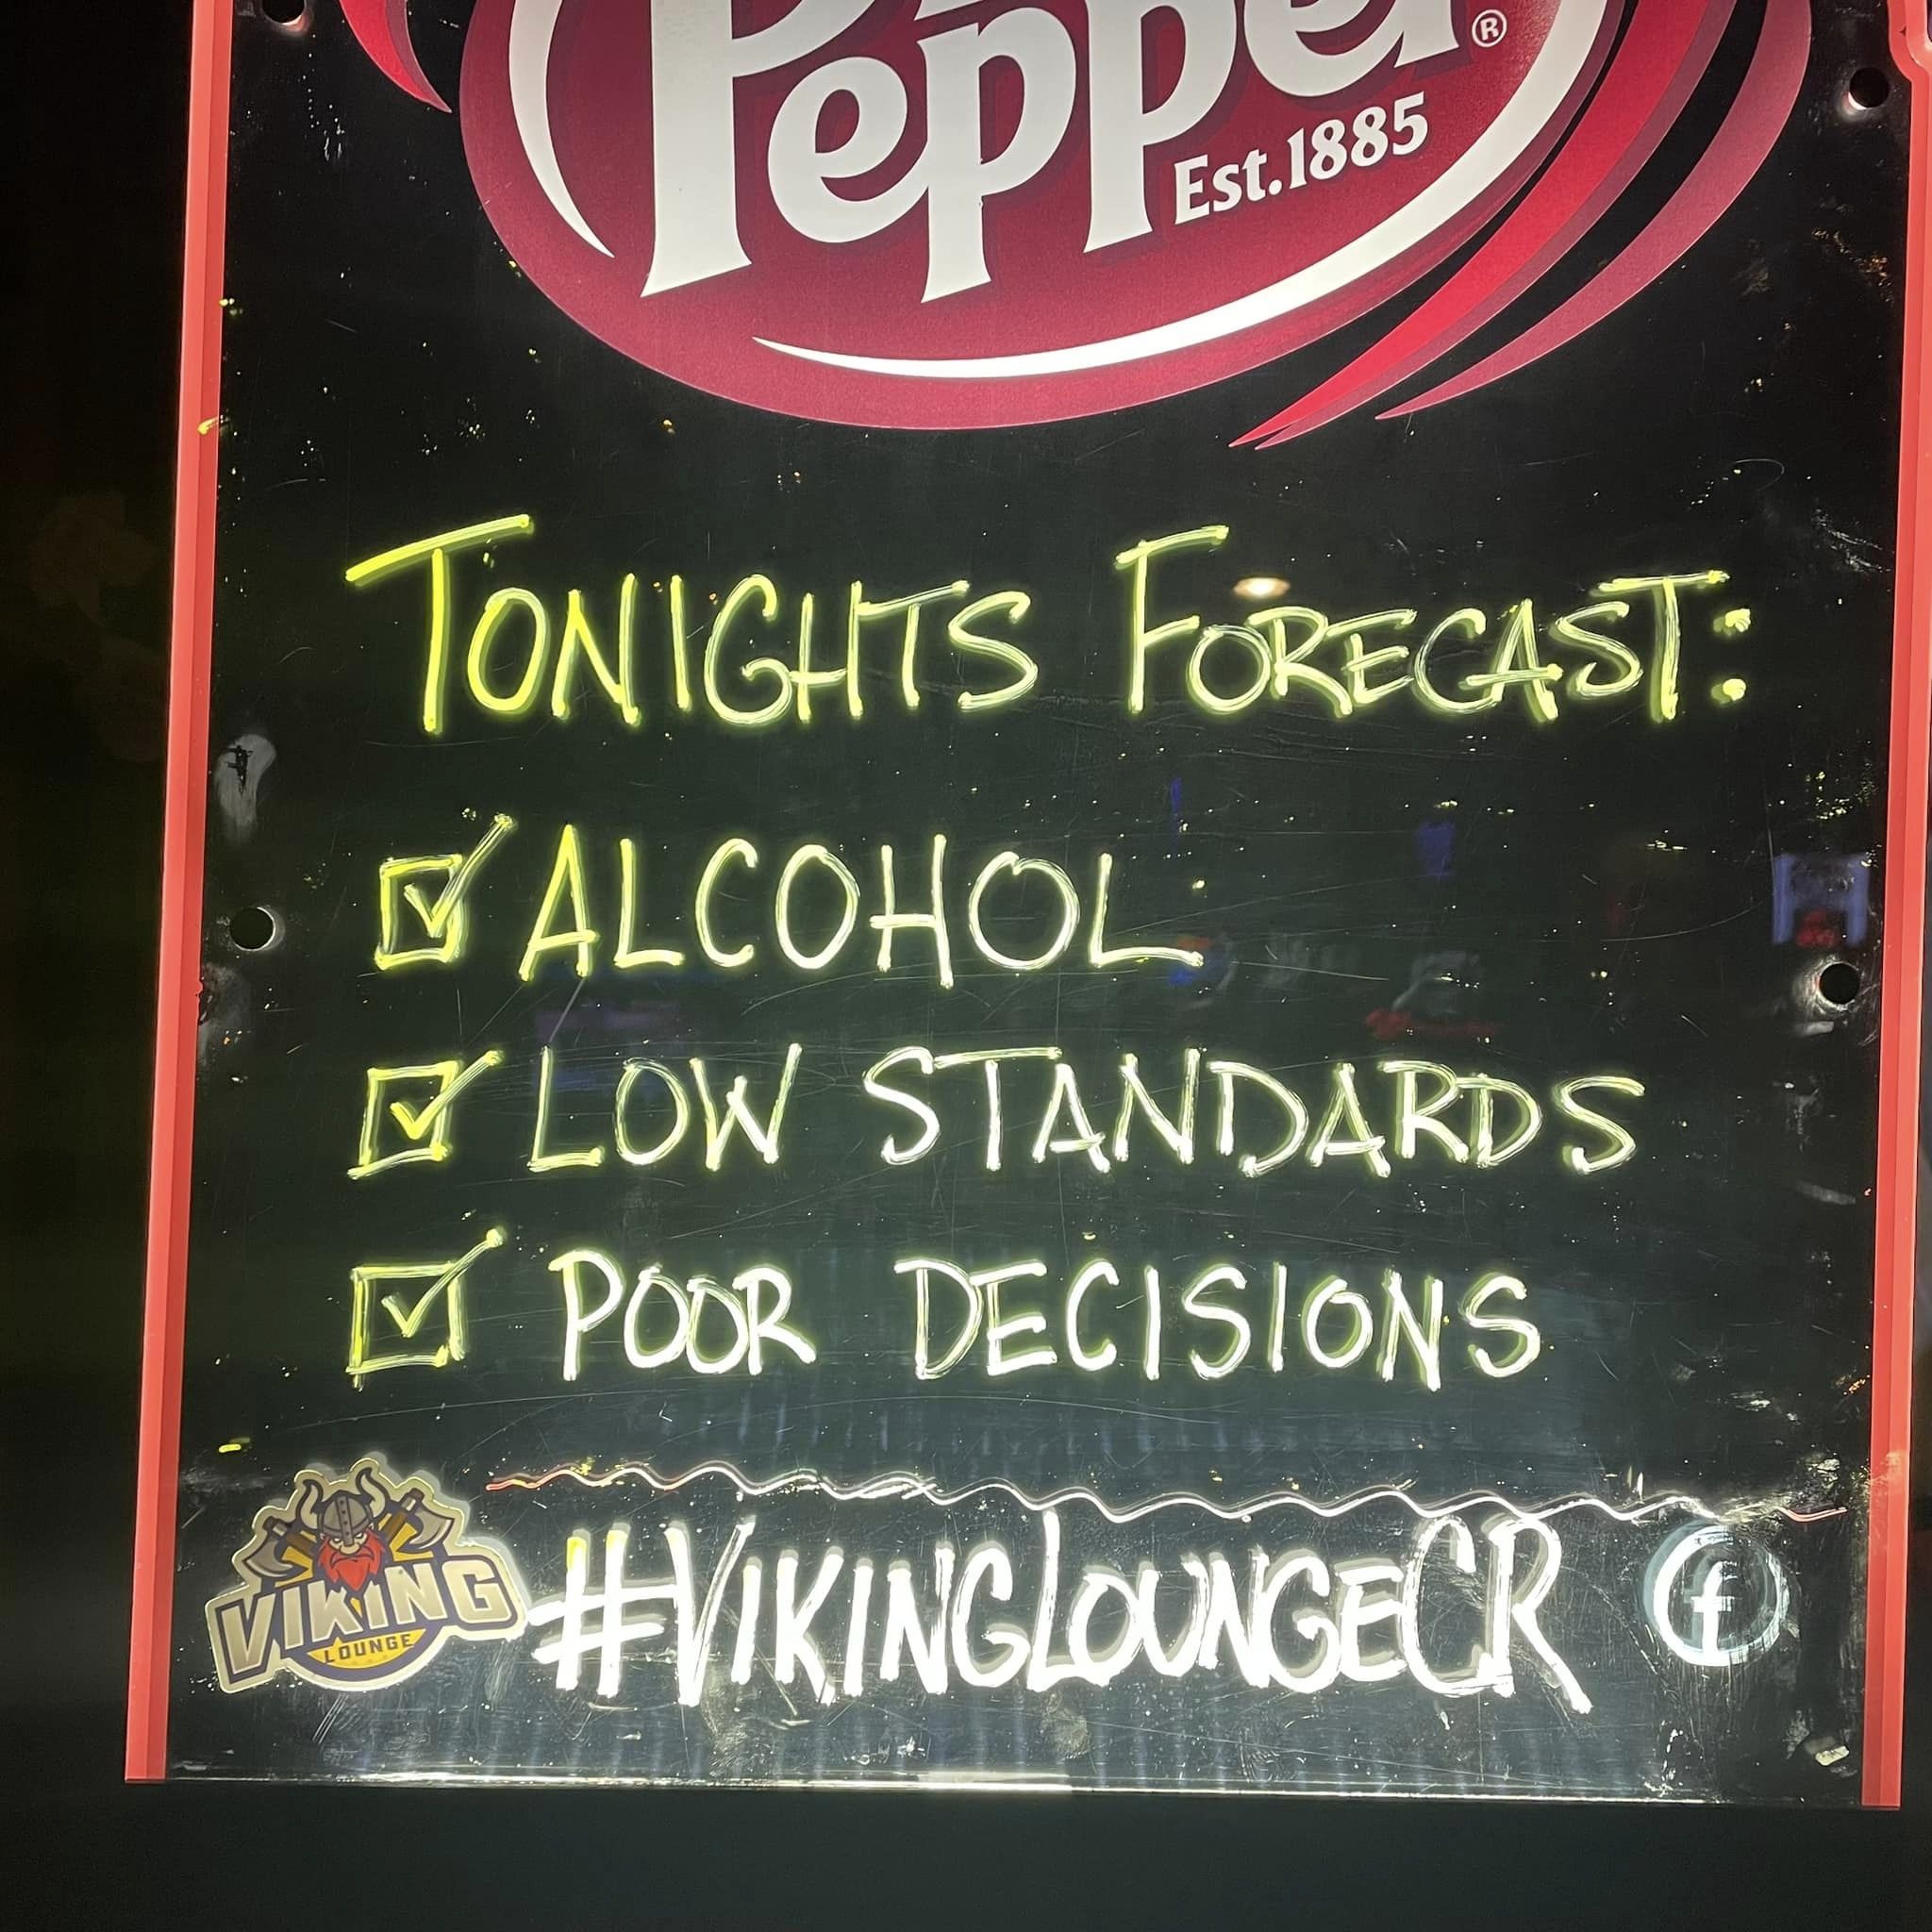 Pepper®
Est.1885
TONIGHTS FORECAST:
ALCOHOL
LOW STANDARDS
POOR DECISIONS
VIKING
LOUNGE
#VIKINGLOUNGECR f